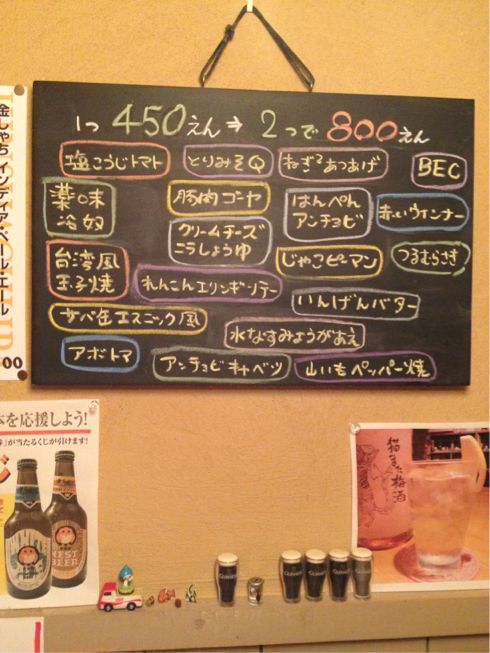 1つ 450えん ⇒ 2つで 800えん
塩こうじトマト
とりみそQ
ねぎ2あつあげ
BEC
薬味
冷奴
豚肉ゴーヤ
はんぺん
アンチョビ
赤いウインナー
クリームチーズ
こうしょうゆ
じゃこピーマン
つるむらさき
台湾風
玉子焼
れんこんエリンギソテー
いんげんバター
サバ缶エスニック風
水なすみょうがあえ
アボトマ
アンチョビキャベツ
山いもペッパー焼
金しゃち インディア・ペールエール
00
本を応援しよう!
が当たるくじが引けます!
NEST
BEER
猫また梅酒
GUINNESS
GUINNESS